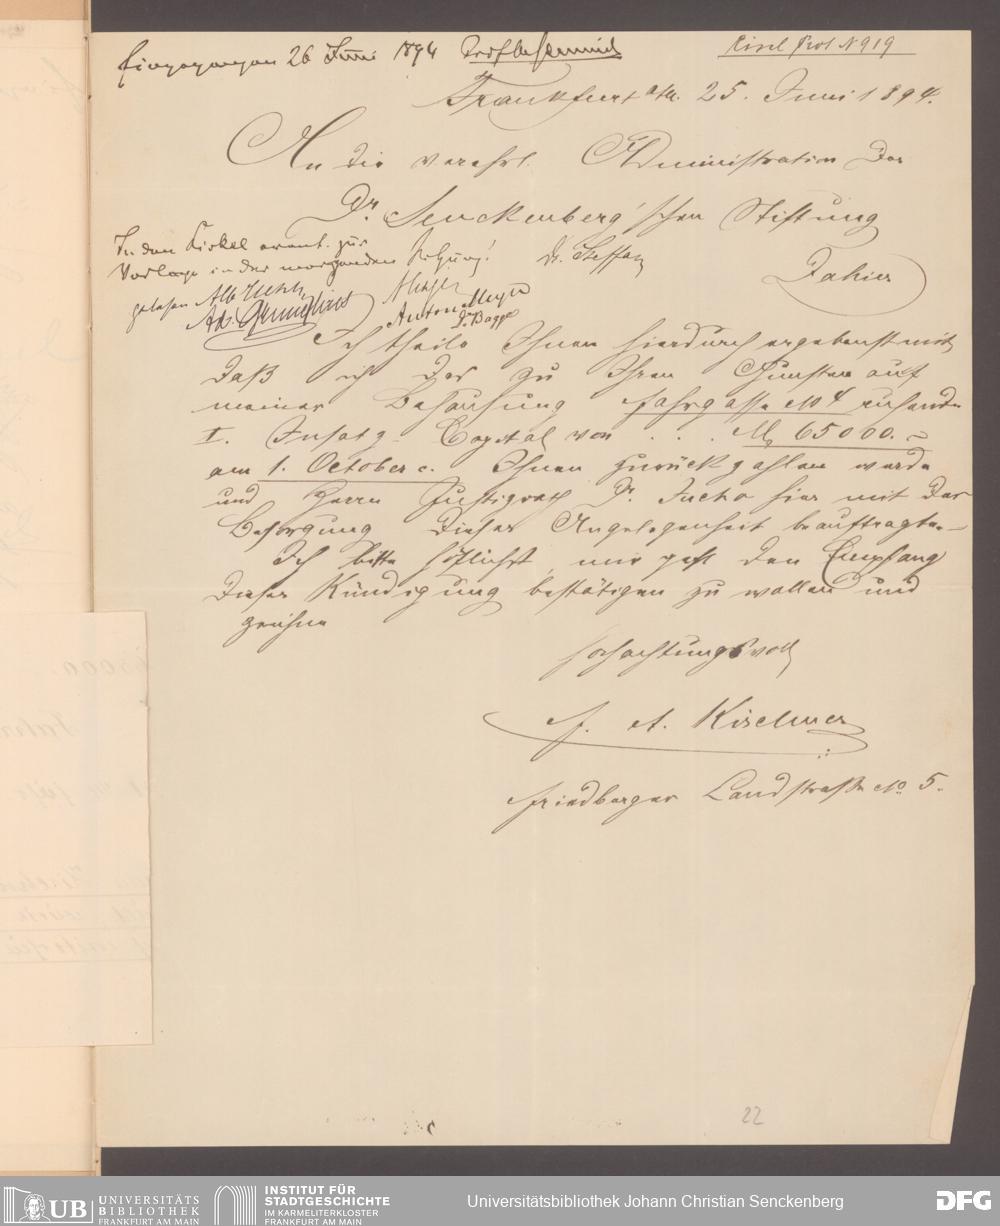 Eingegangen 26 Juni 1894
Frankfurt a/M. 25. Juni 1894.
An die verehrl. Administration der
Dr. Senckenberg'schen Stiftung
Dahier
In den Cirkel event. zur
Vorlage in der morgenden Sitzung! Dr. Steffan
gelesen
Anton Meyer
Ich theile Ihnen hierdurch ergebenst mit
daß ich das zu Ihren Gunsten auf
meiner Behausung Fahrgasse No 4 ruhende
I. Insatz-Capital von . . . M 65000.–
am 1. October c. Ihnen zurückzahlen werde
und Herrn Justizrath Dr. Jucho hier mit der
Besorgung dieser Angelegenheit beauftragte.–
Ich bitte höflichst, mir gefl den Empfang
dieser Kündigung bestätigen zu wollen und
zeichne
hochachtungsvoll
Friedberger Landstraße No. 5.
22
UB UNIVERSITÄTS
BIBLIOTHEK
FRANKFURT AM MAIN
INSTITUT FÜR
STADTGESCHICHTE
IM KARMELITERKLOSTER
FRANKFURT AM MAIN
Universitätsbibliothek Johann Christian Senckenberg
DFG